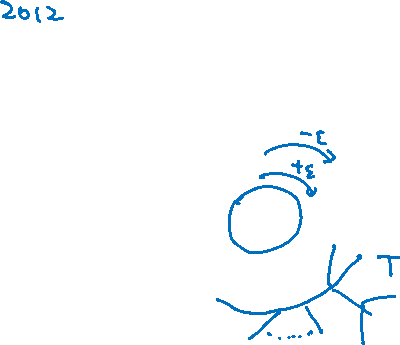 2012
-ε
+ε
T